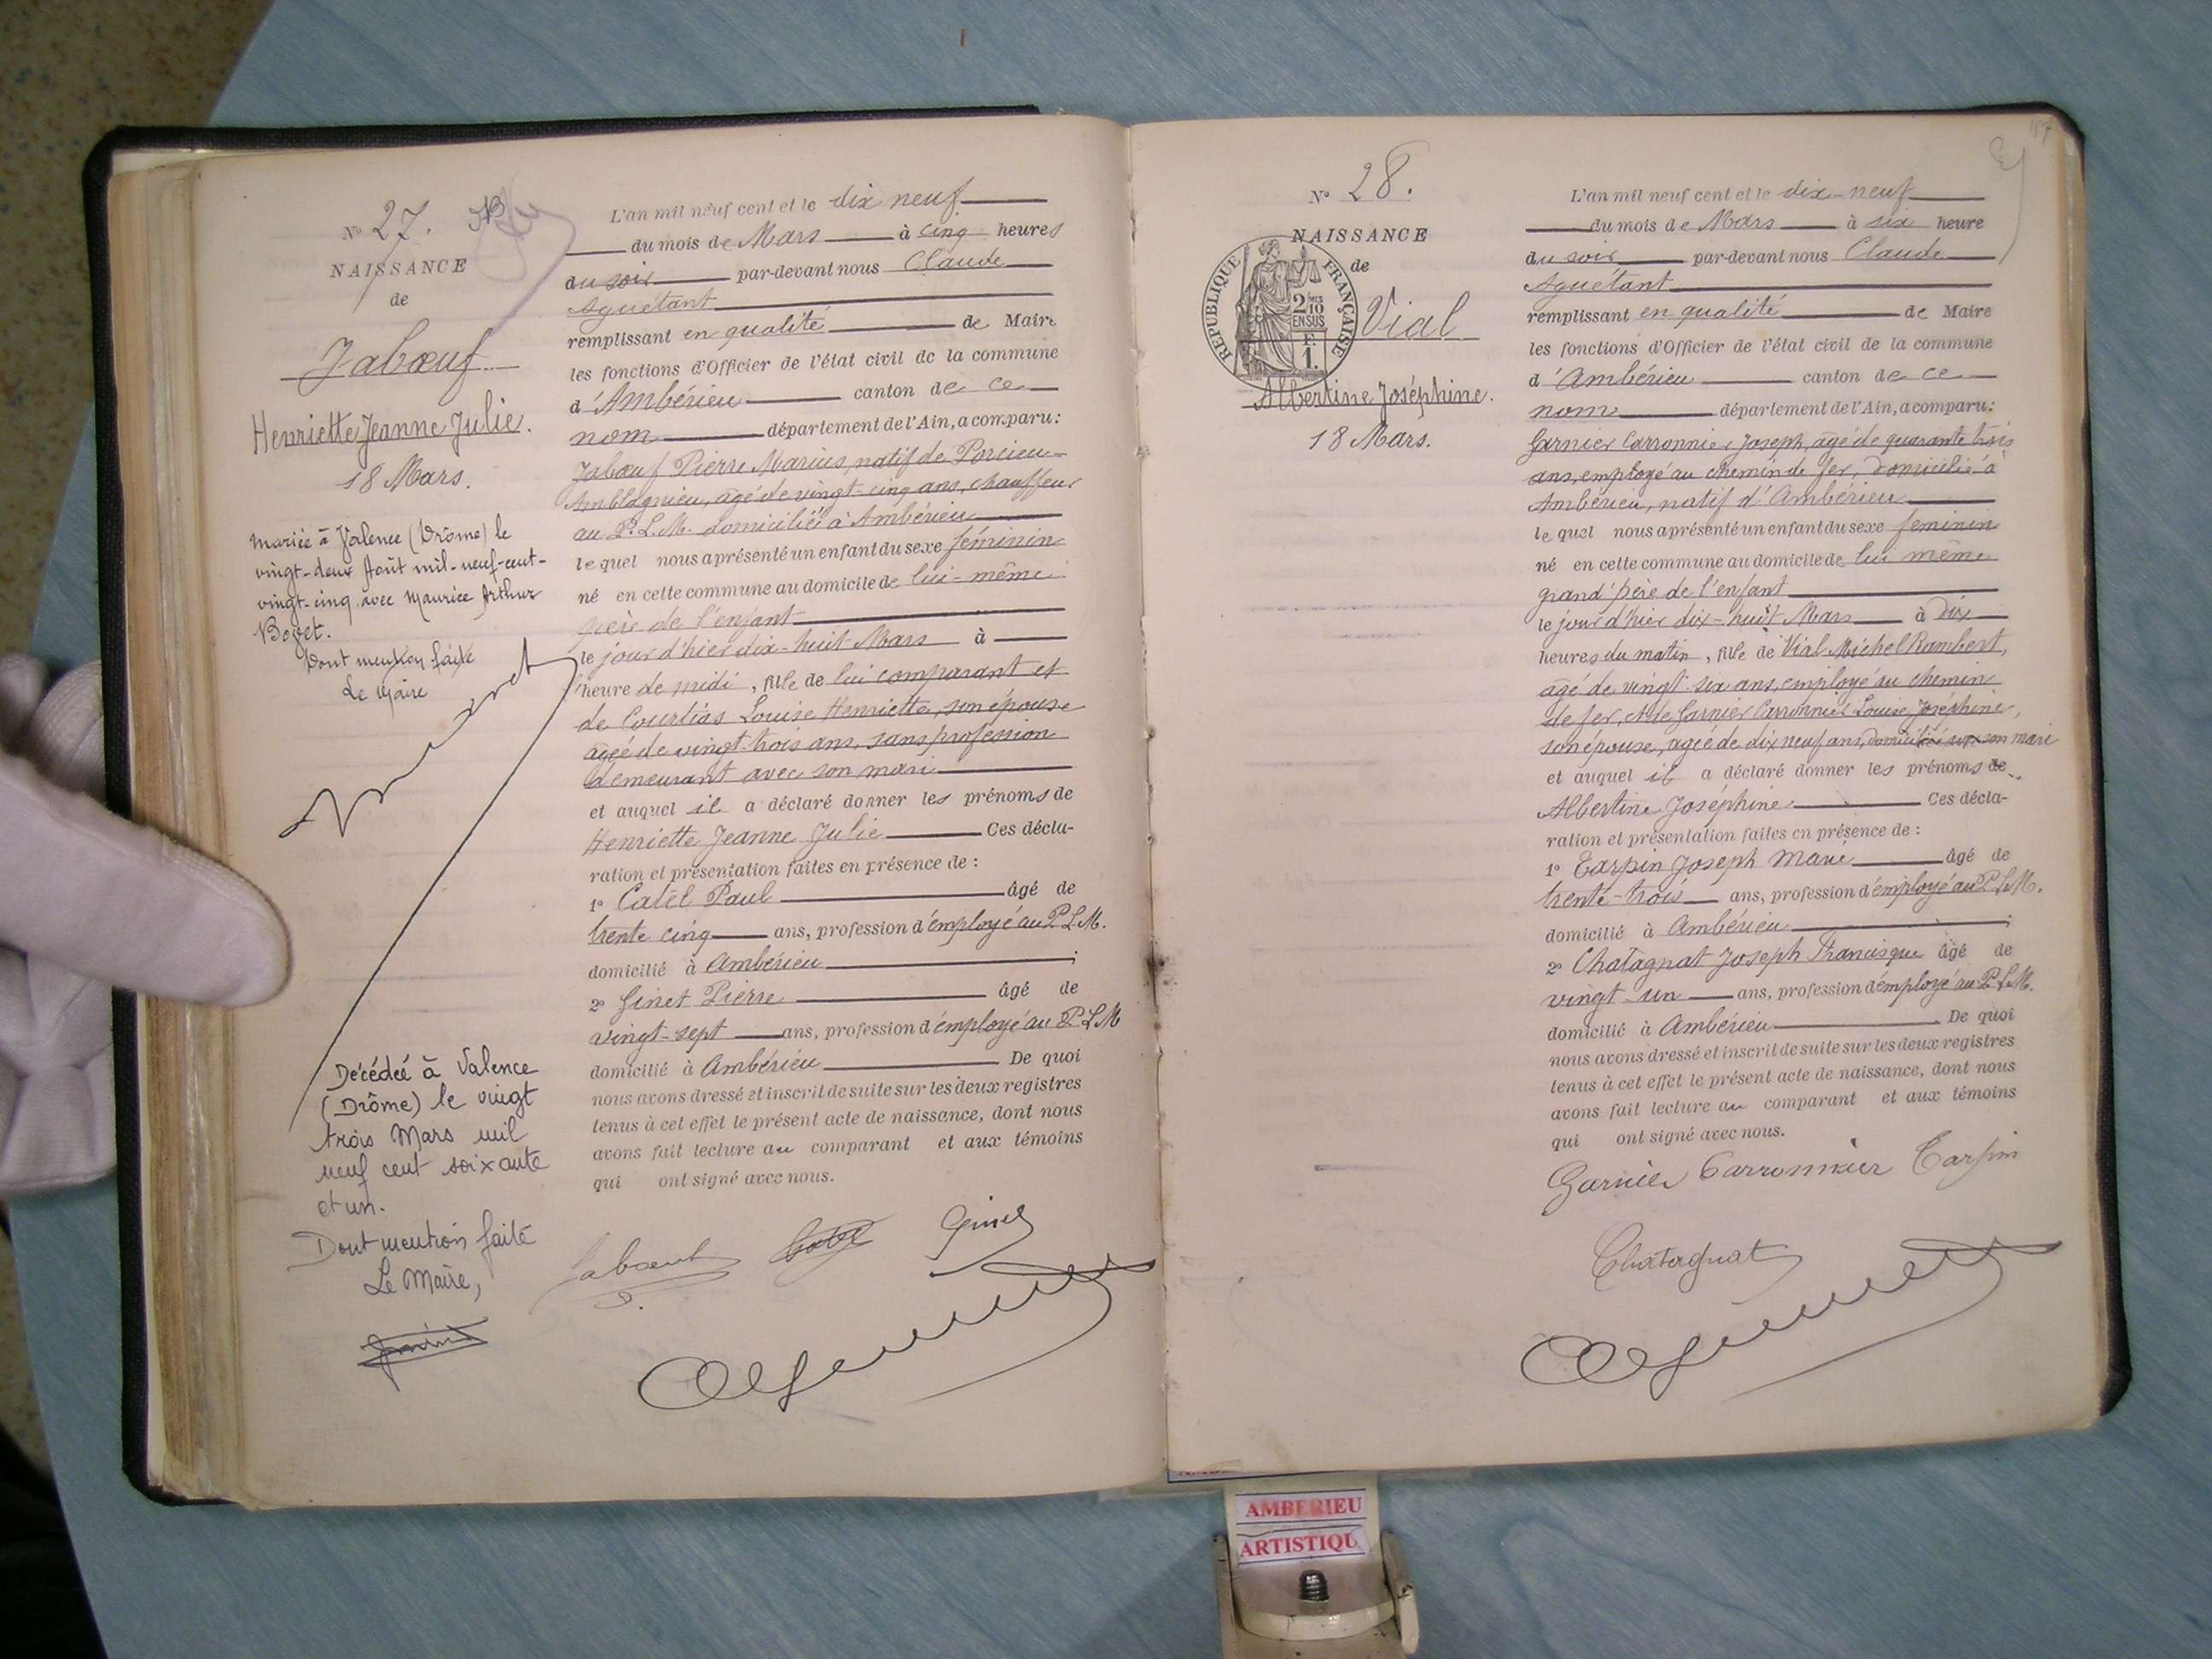 N° 27.
NAISSANCE
de
Jabœuf
Henriette Jeanne Julie.
18 Mars.
mariée à Valence (Drôme) le
vingt-deux Août mil-neuf-cent-
vingt-cinq avec Maurice Arthur
Dont mention faite
Le Maire
Décédée à Valence
(Drôme) le vingt
trois Mars mil
neuf cent soixante
et un.
Dont mention faite
Le Maire,
L'an mil neuf cent et le dix neuf
du mois de Mars à cinq heures
du soir par-devant nous Claude
Aguétant
remplissant en qualité de Maire
les fonctions d'Officier de l'état civil de la commune
d'Ambérieu canton de ce
nom département de l'Ain, a comparu:
Jabœuf Pierre Marius, natif de Porcieu-
Amblagnieu, âgé de vingt-cinq ans, chauffeur
au P.L.M. domicilié à Ambérieu
le quel nous a présenté un enfant du sexe féminin
né en cette commune au domicile de lui-même
père de l'enfant
le jour d'hier dix-huit Mars à
heure de midi, fille de lui comparant et
de Courtias Louise Henriette, son épouse
âgée de vingt-trois ans, sans profession
demeurant avec son mari
et auquel il a déclaré donner les prénoms de
Henriette Jeanne Julie Ces décla-
ration et présentation faites en présence de :
1° Catel Paul âgé de
trente cinq ans, profession d'employé au P.L.M.
domicilié à Ambérieu ;
2° Ginet Pierre âgé de
vingt-sept ans, profession d'employé au P.L.M
domicilié à Ambérieu De quoi
nous avons dressé et inscrit de suite sur les deux registres
tenus à cet effet le présent acte de naissance, dont nous
avons fait lecture au comparant et aux témoins
qui ont signé avec nous.
Jabœuf Catel Ginet
P.
N° 28.
NAISSANCE
de
RÉPUBLIQUE FRANÇAISE
2/10
EN SUS
1.
Vial
Albertine Joséphine.
18 Mars.
L'an mil neuf cent et le dix-neuf
du mois de Mars à six heure
du soir par-devant nous Claude
Aguétant
remplissant en qualité de Maire
les fonctions d'Officier de l'état civil de la commune
d'Ambérieu canton de ce
nom département de l'Ain, a comparu:
Garnier Carronnier Joseph, âgé de quarante trois
ans, employé au chemin de fer, domicilié à
Ambérieu, natif d'Ambérieu
le quel nous a présenté un enfant du sexe féminin
né en cette commune au domicile de lui même
grand'père de l'enfant
le jour d'hier dix-huit Mars à dix
heures du matin, fille de Vial Michel Rambert,
âgé de vingt-six ans, employé au chemin
de fer, et de Garnier Carronnier Louise Joséphine,
son épouse, âgée de dix neuf ans, domicilié son mari
et auquel il a déclaré donner les prénoms de
Albertine Joséphine Ces décla-
ration et présentation faites en présence de :
1° Tarpin Joseph Marie âgé de
trente-trois ans, profession d'employé au P.L.M.
domicilié à Ambérieu ;
2° Chatagnat Joseph Francisque âgé de
vingt-un ans, profession d'employé au P.L.M.
domicilié à Ambérieu De quoi
nous avons dressé et inscrit de suite sur les deux registres
tenus à cet effet le présent acte de naissance, dont nous
avons fait lecture au comparant et aux témoins
qui ont signé avec nous.
Garnier Carronnier Tarpin
Chatagnat
AMBERIEU
ARTISTIQU